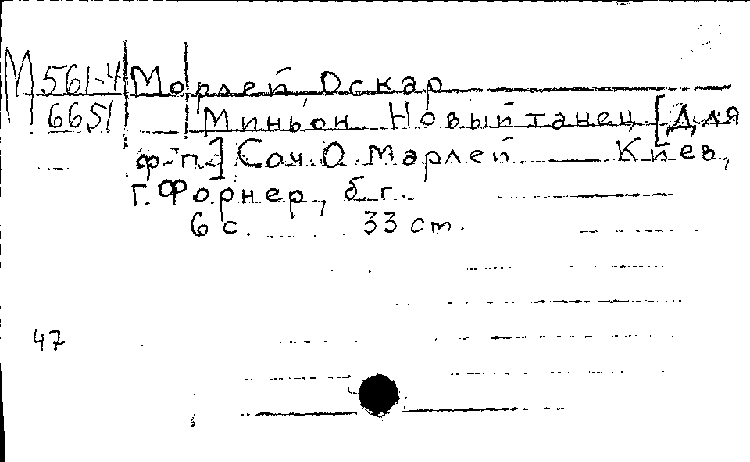 М 561-4 Морлей Оскар
6651 Миньон. Новый танец [Для
ф-п.] Соч. О. Марлей. Киев,
Г. Форнер, б. г.
6 с. 33 см.
47